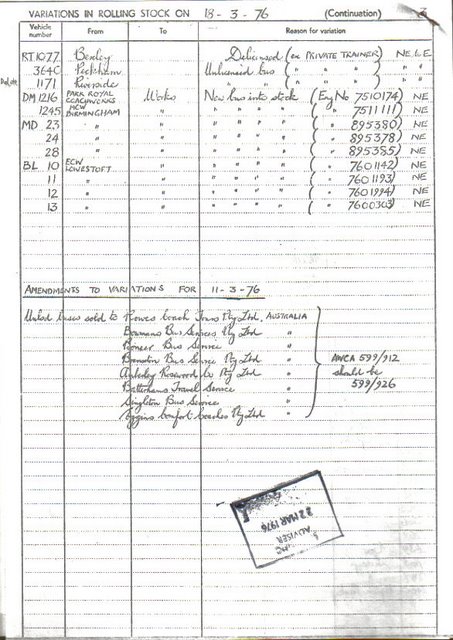 VARIATIONS IN ROLLING STOCK ON 18-3-76 (Continuation) 3
Vehicle number From To Reason for variation
RT1077 Bexley Delicensed (ex PRIVATE TRAINER) NE.L.E.
3640 Peckham Unlicensed bus ( " " " ) " "
Delete 1171 Riverside " " ( " " " ) " "
DM 1216 PARK ROYAL COACHWORKS Works New bus into stock (Eng No 7510174) NE
1245 MCW BIRMINGHAM " " " " " ( " 7511111) NE
MD 23 " " " " " " ( " 895380) NE
24 " " " " " " ( " 895378) NE
28 " " " " " " ( " 895385) NE
BL 10 ECW LOWESTOFT " " " " " ( " 7601142) NE
11 " " " " " " ( " 7601193) NE
12 " " " " " " ( " 7601994) NE
13 " " " " " " ( " 7600303) NE
AMENDMENTS TO VARIATIONS FOR 11-3-76
United buses sold to Rowes Coach Tours Pty Ltd, AUSTRALIA
Bowmans Bus Services Pty Ltd "
Pioneer Bus Service "
Branston Bus Service Pty Ltd " AWCA 599/912
Rosewood Co Pty Ltd " should be
Battenhams Travel Service " 599/926
Singleton Bus Service "
Comfort Coaches Pty Ltd "
22 MAR 1976
ADVISER